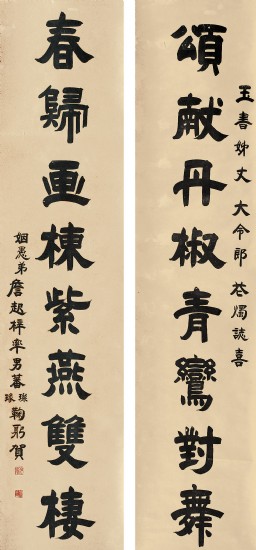 頌献丹椒青鸞對舞
玉書姊丈大令郎花燭誌喜
春歸画棟紫燕雙棲
姻愚弟詹起梓率男蕃
鞠躬賀